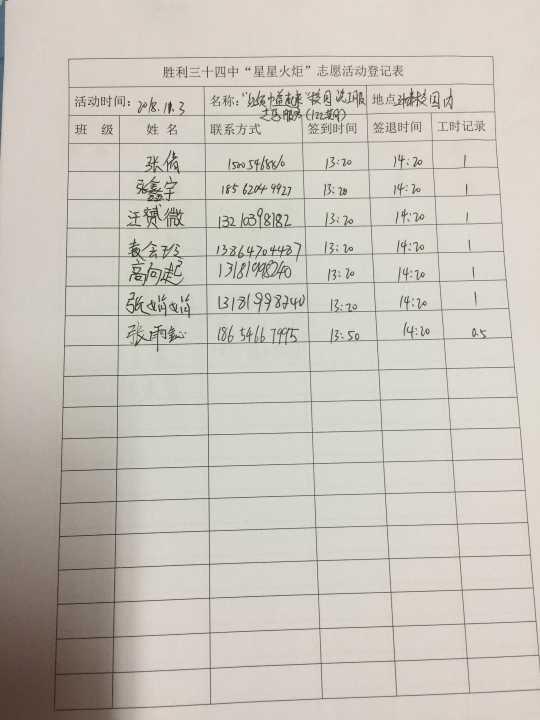 胜利三十四中“星星火炬”志愿活动登记表
活动时间：2018.11.3 名称： 校园 地点 校园内
志愿服务
班 级 姓 名 联系方式 签到时间 签退时间 工时记录
张 13:20 14:20 1
张鑫宇 185 6204 9927 13:20 14:20 1
汪 微 13210398182 13:20 14:20 1
袁会 13864704487 13:20 14:20 1
高向起 13181998240 13:20 14:20 1
张娟娟 13181998240 13:20 14:20 1
张雨 186 5466 7995 13:50 14:20 0.5